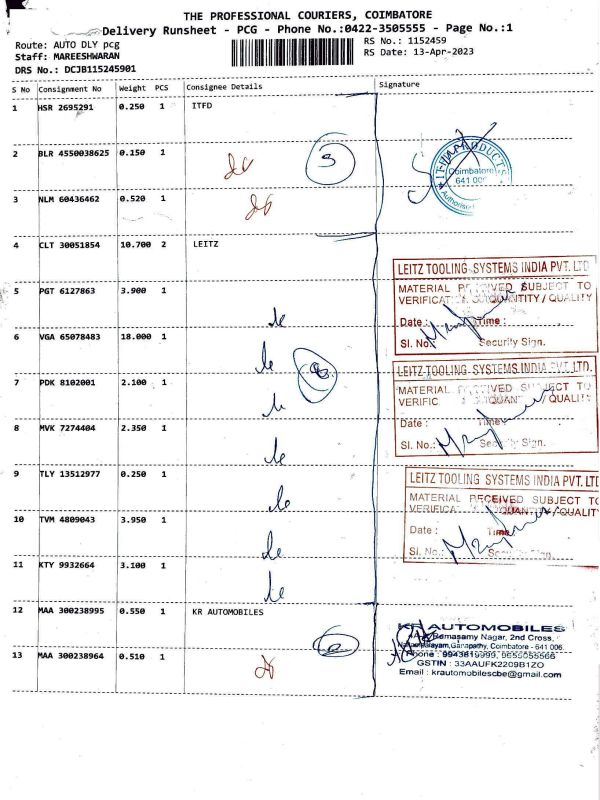 THE PROFESSIONAL COURIERS, COIMBATORE
Delivery Runsheet - PCG - Phone No.:0422-3505555 - Page No.:1
Route: AUTO DLY pcg
RS No.: 1152459
Staff: MAREESHWARAN
RS Date: 13-Apr-2023
DRS No.: DCJB115245901
S No Consignment No Weight PCS Consignee Details Signature
1 HSR 2695291 0.250 1 ITFD
2 BLR 4550038625 0.150 1
3 NLM 60436462 0.520 1
Coimbatore
641 006
4 CLT 30051854 10.700 2 LEITZ
5 PGT 6127863 3.900 1
LEITZ TOOLING SYSTEMS INDIA PVT. LTD
MATERIAL RECEIVED SUBJECT TO
QUANTITY / QUALITY
Date : Time :
Sl. No.: Security Sign.
6 VGA 65078483 18.000 1
7 PDK 8102001 2.100 1
LEITZ TOOLING SYSTEMS INDIA PVT. LTD.
MATERIAL SUBJECT TO
QUALITY
Date : Time
Sl. No.: Sign.
8 MVK 7274404 2.350 1
9 TLY 13512977 0.250 1
LEITZ TOOLING SYSTEMS INDIA PVT. LTD
MATERIAL RECEIVED SUBJECT TO
QUANTITY / QUALITY
Date :
Sl. No.:
10 TVM 4809043 3.950 1
11 KTY 9932664 3.100 1
12 MAA 300238995 0.550 1 KR AUTOMOBILES
KR AUTOMOBILES
Ramasamy Nagar, 2nd Cross,
Ganapathy, Coimbatore - 641 006.
13 MAA 300238964 0.510 1
GSTIN : 33AAUFK2209B1ZO
Email : krautomobilescbe@gmail.com